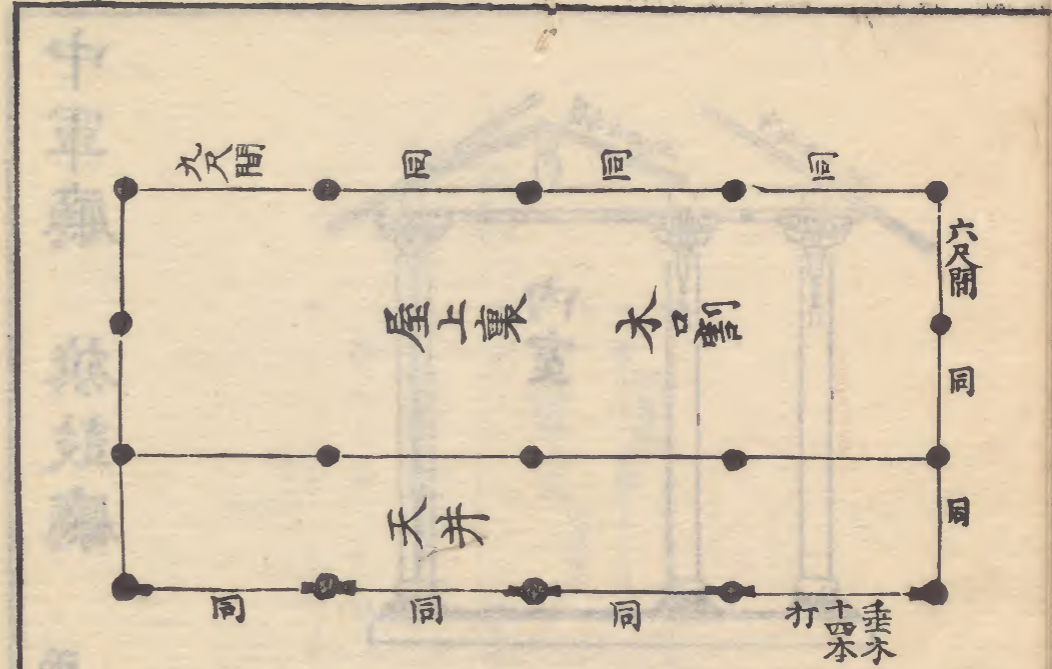 九尺間
同
同
同
六尺間
同
同
屋上裏
木口割
天井
同
同
同
垂木
十四本
打